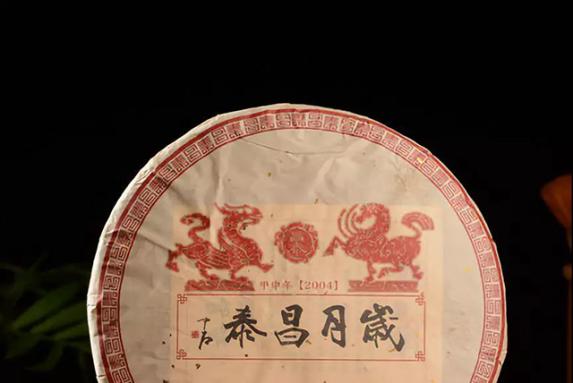 甲申年【2004】
歲月昌泰